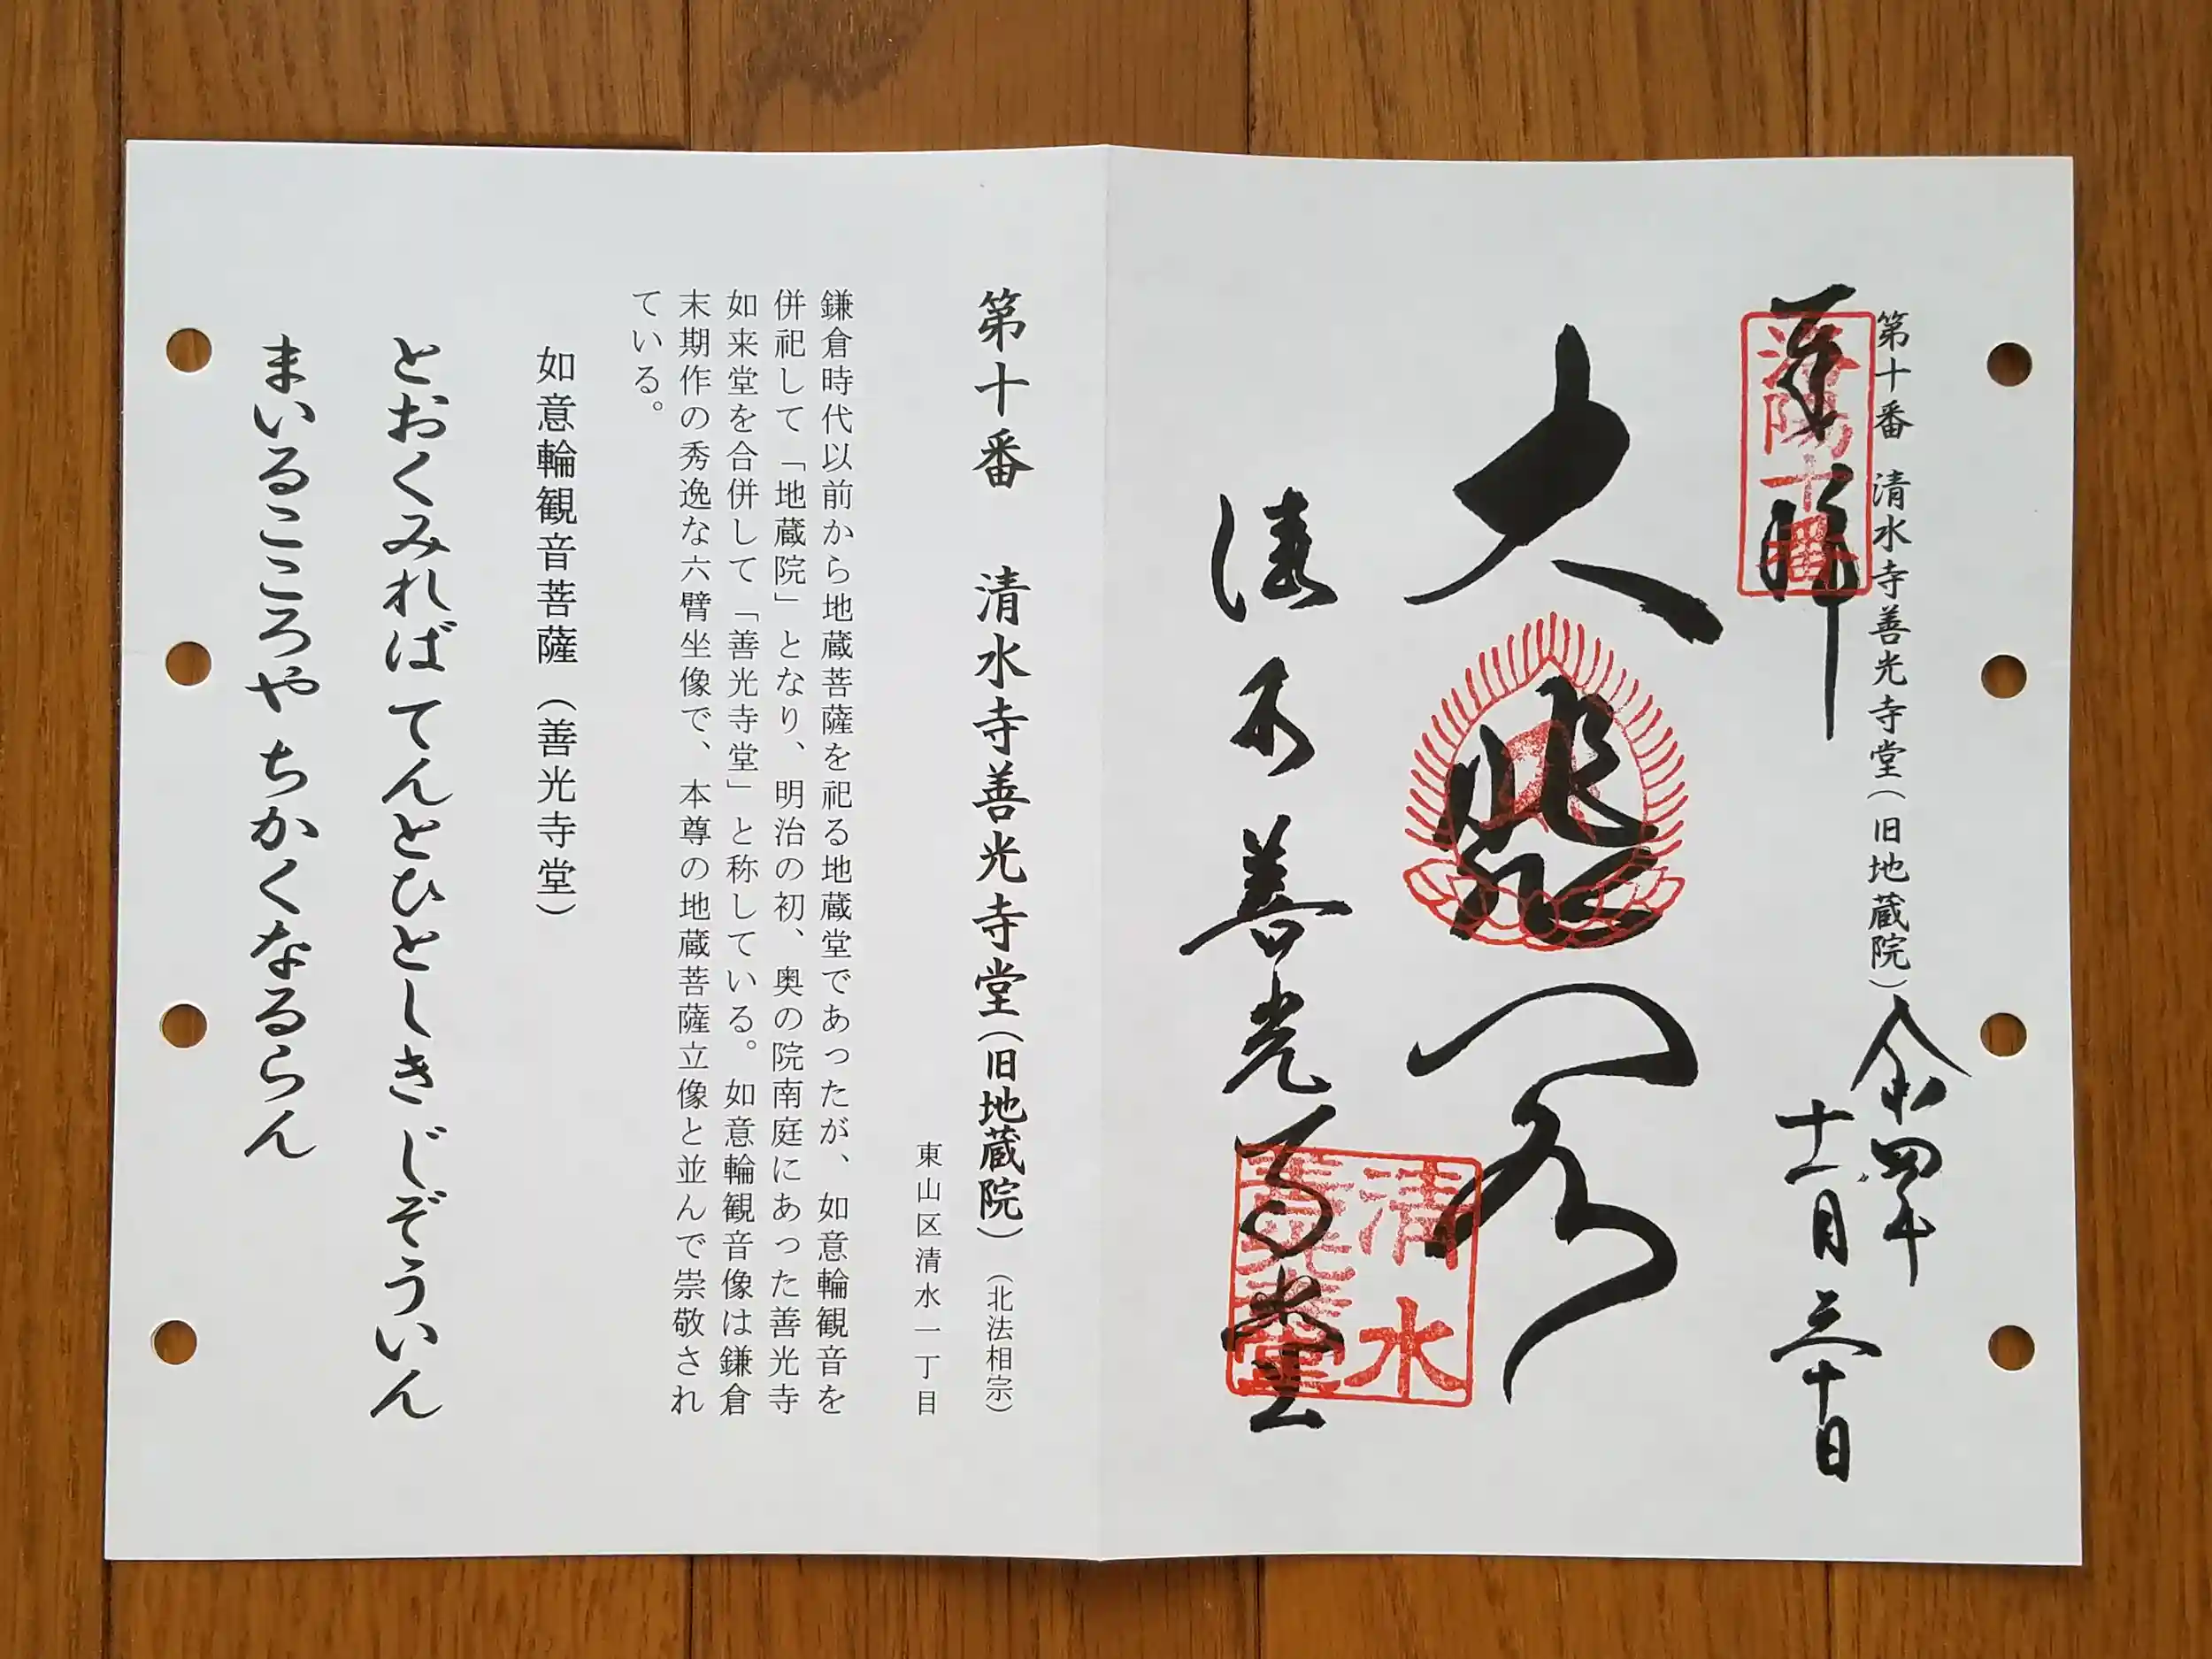 第十番 清水寺善光寺堂(旧地蔵院)
奉拝
洛陽十番
令四年
十一月三十日
大悲閣
清水善光寺堂
清水
善光寺堂
第十番 清水寺善光寺堂(旧地蔵院)(北法相宗)
東山区清水一丁目
鎌倉時代以前から地蔵菩薩を祀る地蔵堂であったが、如意輪観音を
併祀して「地蔵院」となり、明治の初、奥の院南庭にあった善光寺
如来堂を合併して「善光寺堂」と称している。如意輪観音像は鎌倉
末期作の秀逸な六臂坐像で、本尊の地蔵菩薩立像と並んで崇敬され
ている。
如意輪観音菩薩(善光寺堂)
とおくみれば てんとひとしき じぞういん
まいるこころや ちかくなるらん